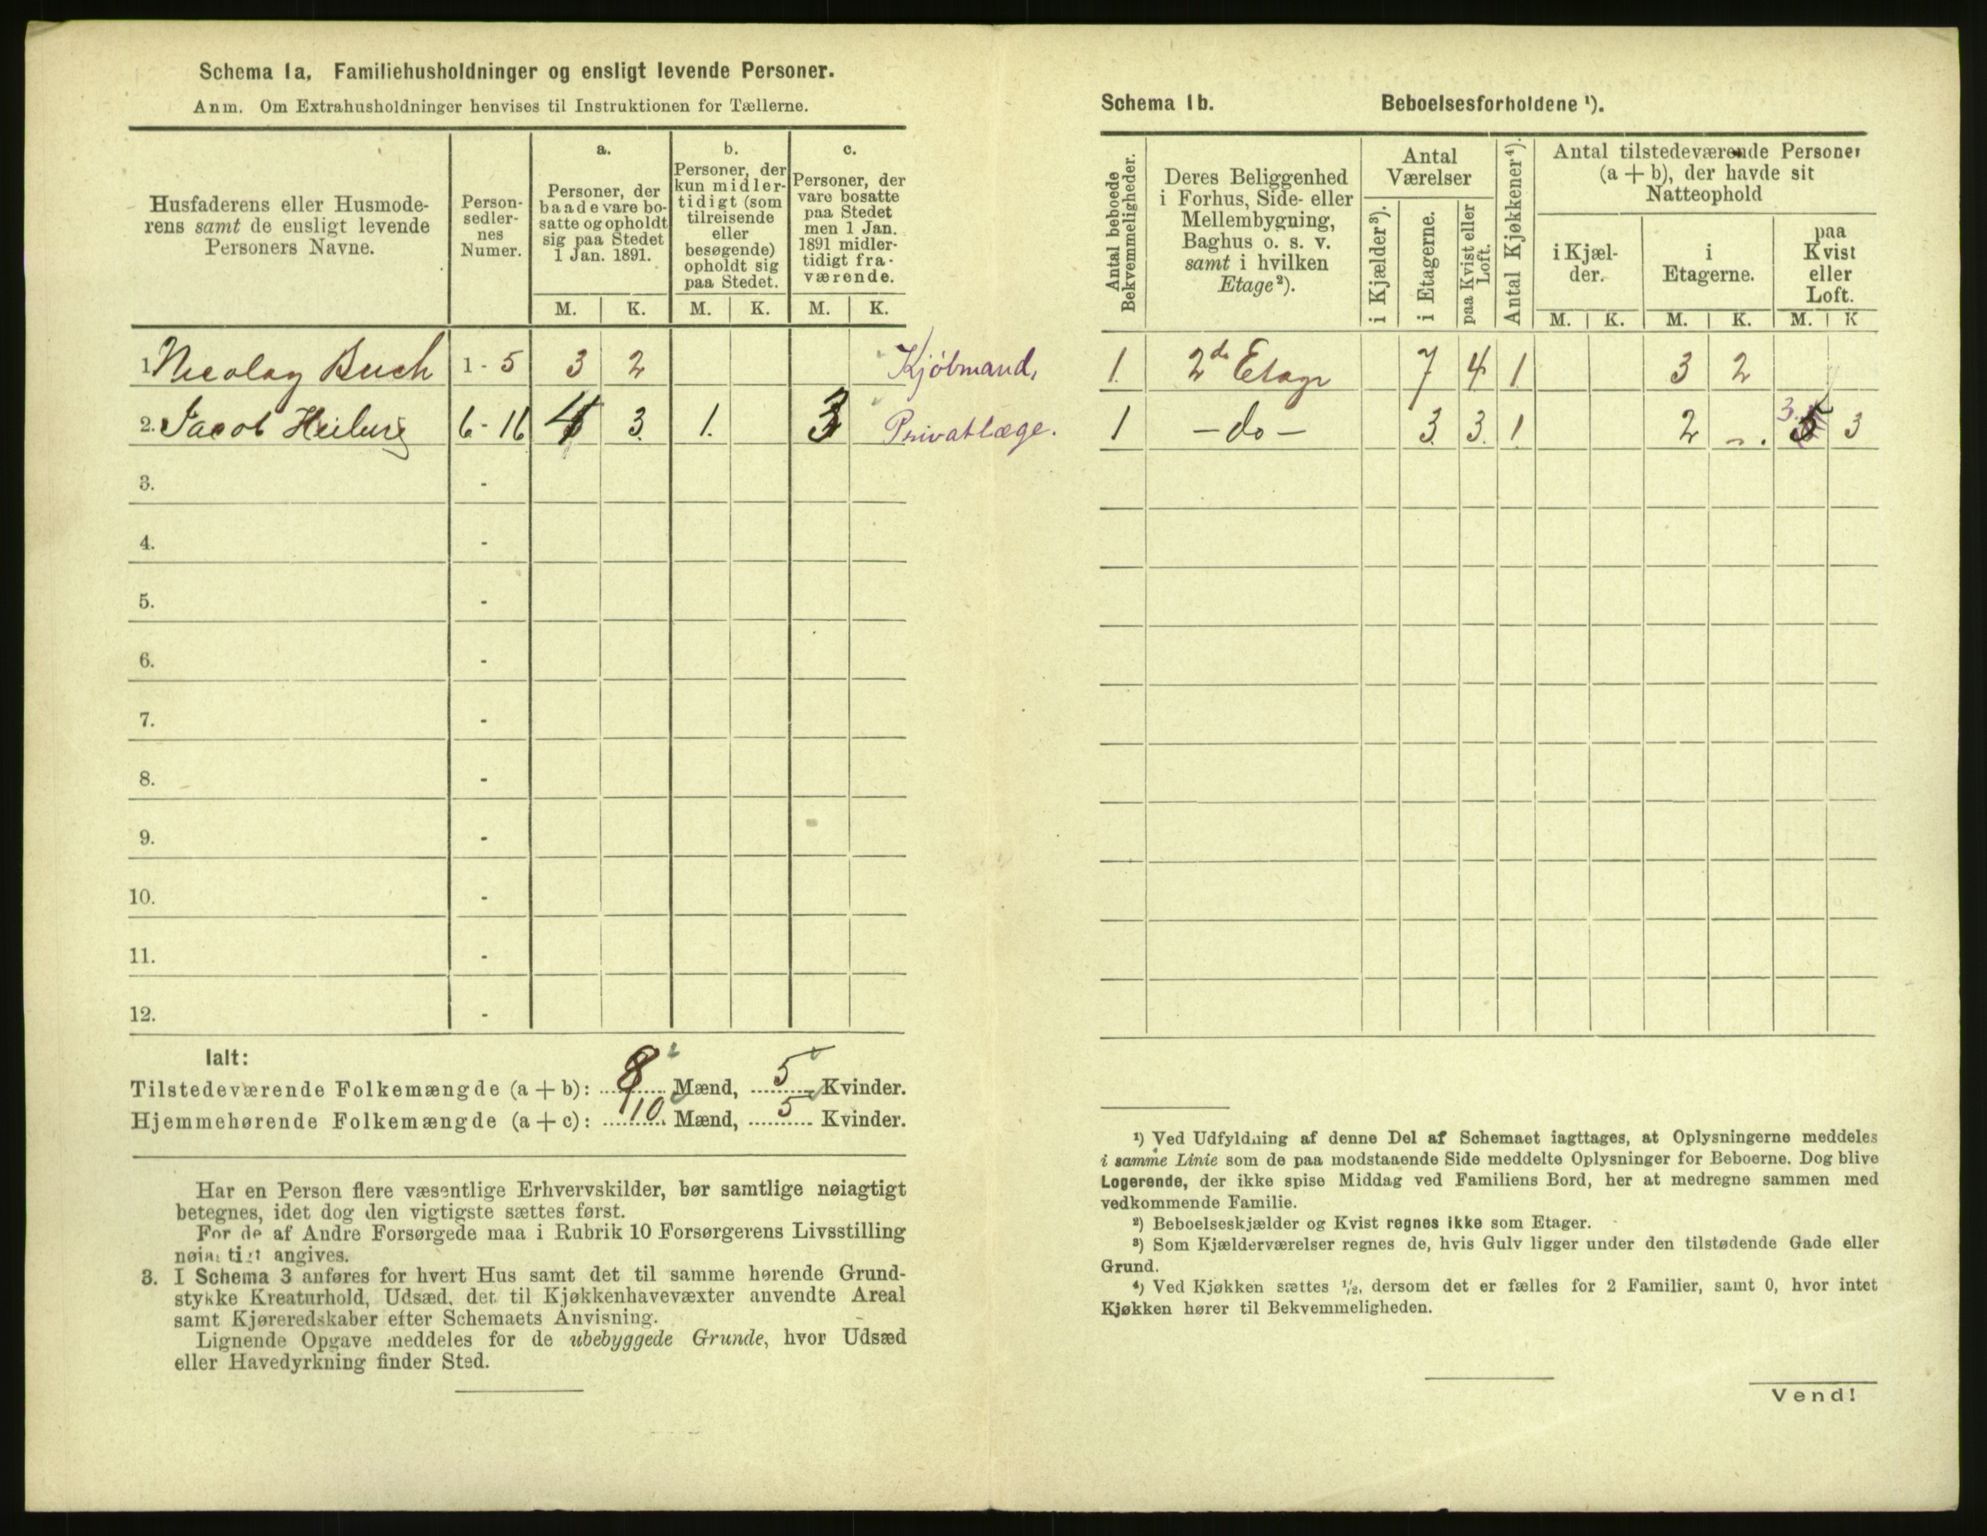 Schema 1a. Familiehusholdninger og ensligt levende Personer.
Anm. Om Extrahusholdninger henvises til Instruktionen for Tællerne.
Husfaderens eller Husmode-
rens samt de ensligt levende
Personers Navne.
Person-
sedler-
nes
Numer.
a.
Personer, der
baade vare bo-
satte og opholdt
sig paa Stedet
1 Jan. 1891.
b.
Personer, der
kun midler-
tidigt (som
tilreisende
eller
besøgende)
opholdt sig
paa Stedet.
c.
Personer, der
vare bosatte
paa Stedet
men 1 Jan.
1891 midler-
tidigt fra-
værende.
M. K. M. K. M. K.
1. Nicolay Buch 1 - 5 3 2 Kjöbmand,
2. Jacob Heiberg 6 - 16 4 3. 1. 3 Privatlæge.
3. -
4. -
5. -
6. -
7. -
8. -
9. -
10. -
11. -
12. -
Ialt:
Tilstedeværende Folkemængde (a + b): 8 Mænd, 5 Kvinder.
Hjemmehørende Folkemængde (a + c): 10 Mænd, 5 Kvinder.
Har en Person flere væsentlige Erhvervskilder, bør samtlige nøiagtigt
betegnes, idet dog den vigtigste sættes først.
For de af Andre Forsørgede maa i Rubrik 10 Forsørgerens Livsstilling
nøiagtigt angives.
3. I Schema 3 anføres for hvert Hus samt det til samme hørende Grund-
stykke Kreaturhold, Udsæd, det til Kjøkkenhavevæxter anvendte Areal
samt Kjøreredskaber efter Schemaets Anvisning.
Lignende Opgave meddeles for de ubebyggede Grunde, hvor Udsæd
eller Havedyrkning finder Sted.
Schema 1b. Beboelsesforholdene ¹).
Antal beboede
Bekvemmeligheder.
Deres Beliggenhed
i Forhus, Side- eller
Mellembygning,
Baghus o. s. v.
samt i hvilken
Etage²).
Antal
Værelser
i Kjælder³).
i Etagerne.
paa Kvist eller
Loft.
Antal Kjøkkener⁴).
Antal tilstedeværende Personer
(a + b), der havde sit
Natteophold
i Kjæl-
der.
i
Etagerne.
paa
Kvist
eller
Loft.
M. K. M. K. M. K
1. 2de Etage 7 4 1 3 2
1 - do - 3. 3. 1. 2 3. 5 3
¹) Ved Udfyldning af denne Del af Schemaet iagttages, at Oplysningerne meddeles
i samme Linie som de paa modstaaende Side meddelte Oplysninger for Beboerne. Dog blive
Logerende, der ikke spise Middag ved Familiens Bord, her at medregne sammen med
vedkommende Familie.
²) Beboelseskjælder og Kvist regnes ikke som Etager.
³) Som Kjælderværelser regnes de, hvis Gulv ligger under den tilstødende Gade eller
Grund.
⁴) Ved Kjøkken sættes ¹/₂, dersom det er fælles for 2 Familier, samt 0, hvor intet
Kjøkken hører til Bekvemmeligheden.
Vend!